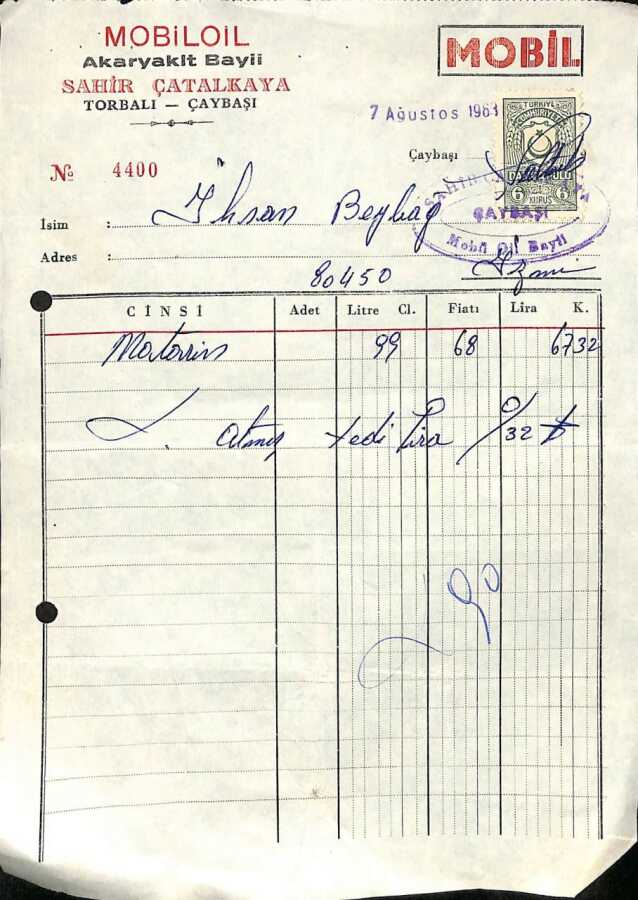 MOBİLOİL
Akaryakıt Bayii
SAHİR ÇATALKAYA
TORBALI — ÇAYBAŞI
MOBİL
7 Ağustos 1963
TÜRKİYE
CUMHURİYETİ
DAMGA PULU
6 KURUŞ 6
Çaybaşı
SAHİR ÇATALKAYA
ÇAYBAŞI
Mobil Oil Bayii
№ 4400
İsim : İhsan Beybağ
Adres :
80450 İzmir
CİNSİ Adet Litre Cl. Fiatı Lira K.
Motorin 99 68 6732
atmış yedi lira 32